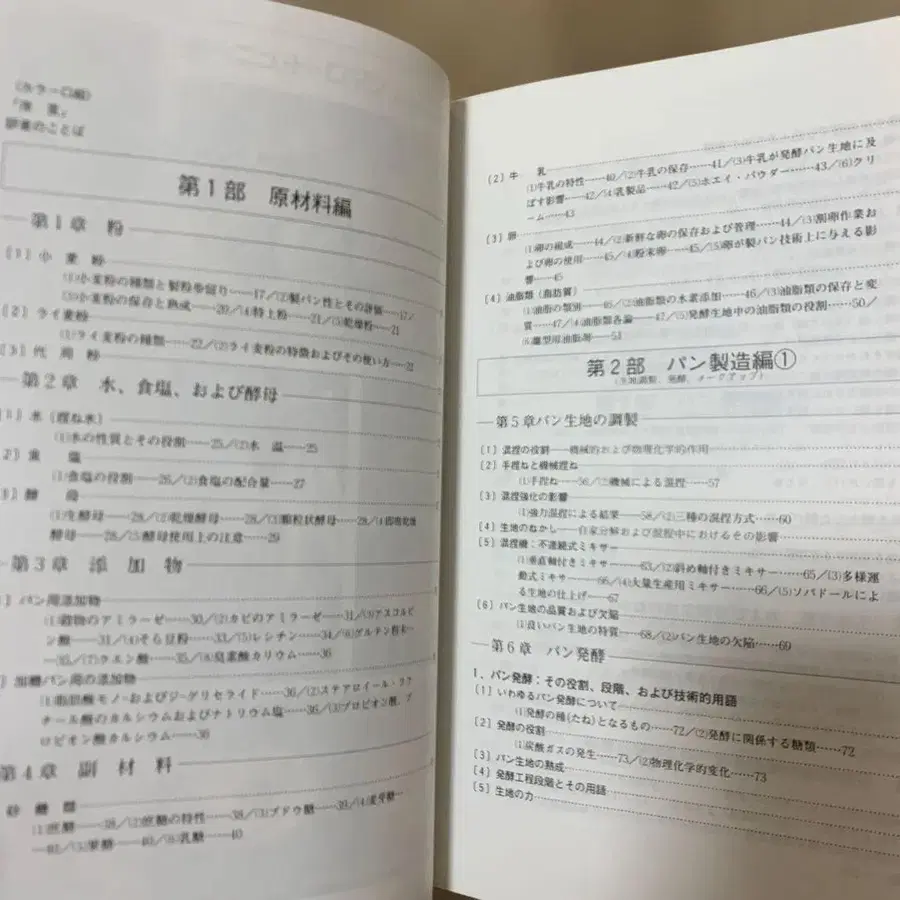 (カラー口絵)
「
のことば
第1部 原材料編
第1章 粉
〔1〕小 麦 粉
⑴小麦粉の種類と製粉歩留り……17/⑵製パン性とその評価……17/
⑶小麦粉の保存と熟成……20/⑷特上粉……21/⑸乾燥粉……21
〔2〕ライ麦粉
⑴ライ麦粉の種類……22/⑵ライ麦粉の特徴およびその使い方……22
〔3〕代 用 粉
第2章 水、食塩、および酵母
〔1〕水(捏ね水)
⑴水の性質とその役割……25/⑵水 温……25
2〕食 塩
⑴食塩の役割……26/⑵食塩の配合量……27
3〕酵 母
⑴生酵母……28/⑵乾燥酵母……28/⑶顆粒状酵母……28/⑷即席乾燥
酵母……28/⑸酵母使用上の注意……29
第3章 添 加 物
〕パン用添加物
⑴穀物のアミラーゼ……30/⑵カビのアミラーゼ……31/⑶アスコルビ
ン酸……31/⑷そら豆粉……33/⑸レシチン……34/⑹グルテン粉末…
…35/⑺クエン酸……35/⑻臭素酸カリウム……36
〕加糖パン用の添加物
⑴脂肪酸モノ-およびジ-グリセライド……36/⑵ステアロイール-ラク
チール酸のカルシウムおよびナトリウム塩……36/⑶プロピオン酸、プ
ロピオン酸カルシウム……36
第4章 副 材 料
砂 糖 類
⑴庶糖……38/⑵庶糖の特性……38/⑶ブドウ糖……39/⑷麦芽糖…
…40/⑸果糖……40/⑹乳糖……40
〔2〕牛 乳
⑴牛乳の特性……40/⑵牛乳の保存……41/⑶牛乳が発酵パン生地に及
ぼす影響……42/⑷乳製品……42/⑸ホエイ・パウダー……43/⑹クリ
ーム……43
〔3〕卵
⑴卵の組成……44/⑵新鮮な卵の保存および管理……44/⑶割卵作業お
よび卵の使用……45/⑷粉末卵……45/⑸卵が製パン技術上に与える影
響……45
〔4〕油脂類(脂肪質)
⑴油脂の類別……46/⑵油脂類の水素添加……46/⑶油脂類の保存と変
質……47/⑷油脂類各論……47/⑸発酵生地中の油脂類の役割……50/
⑹離型用油脂剤……51
第2部 パン製造編①
(生地調製、発酵、メークアップ)
第5章パン生地の調製
〔1〕混捏の役割——機械的および物理化学的作用
〔2〕手捏ねと機械捏ね
⑴手捏ね……56/⑵機械による混捏……57
〔3〕混捏強化の影響
⑴強力混捏による結果……58/⑵三種の混捏方式……60
〔4〕生地のねかし——自家分解および混捏中におけるその影響
〔5〕混捏機:不連続式ミキサー
⑴垂直軸付きミキサー……63/⑵斜め軸付きミキサー……65/⑶多様運
動式ミキサー……66/⑷大量生産用ミキサー……66/⑸ソバドールによ
る生地の仕上げ……67
〔6〕パン生地の品質および欠陥
⑴良いパン生地の特質……68/⑵パン生地の欠陥……69
第6章 パン発酵
1. パン発酵:その役割、段階、および技術的用語
〔1〕いわゆるパン発酵について
⑴発酵の種(たね)となるもの……72/⑵発酵に関係する糖類……72
〔2〕発酵の役割
⑴炭酸ガスの発生……73/⑵物理化学的変化……73
〔3〕パン生地の熟成
〔4〕発酵工程段階とその用語
〔5〕生地の力